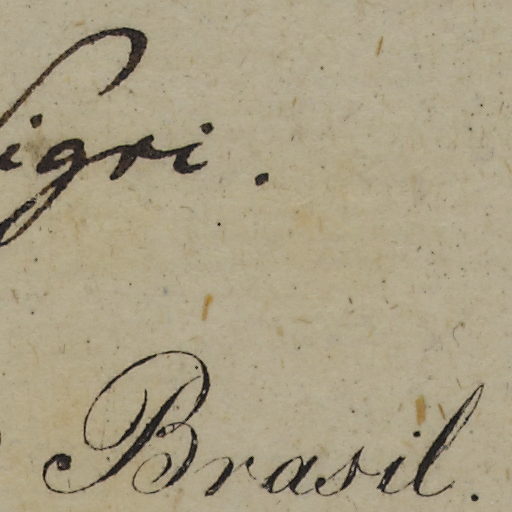 igri.
Brasil.